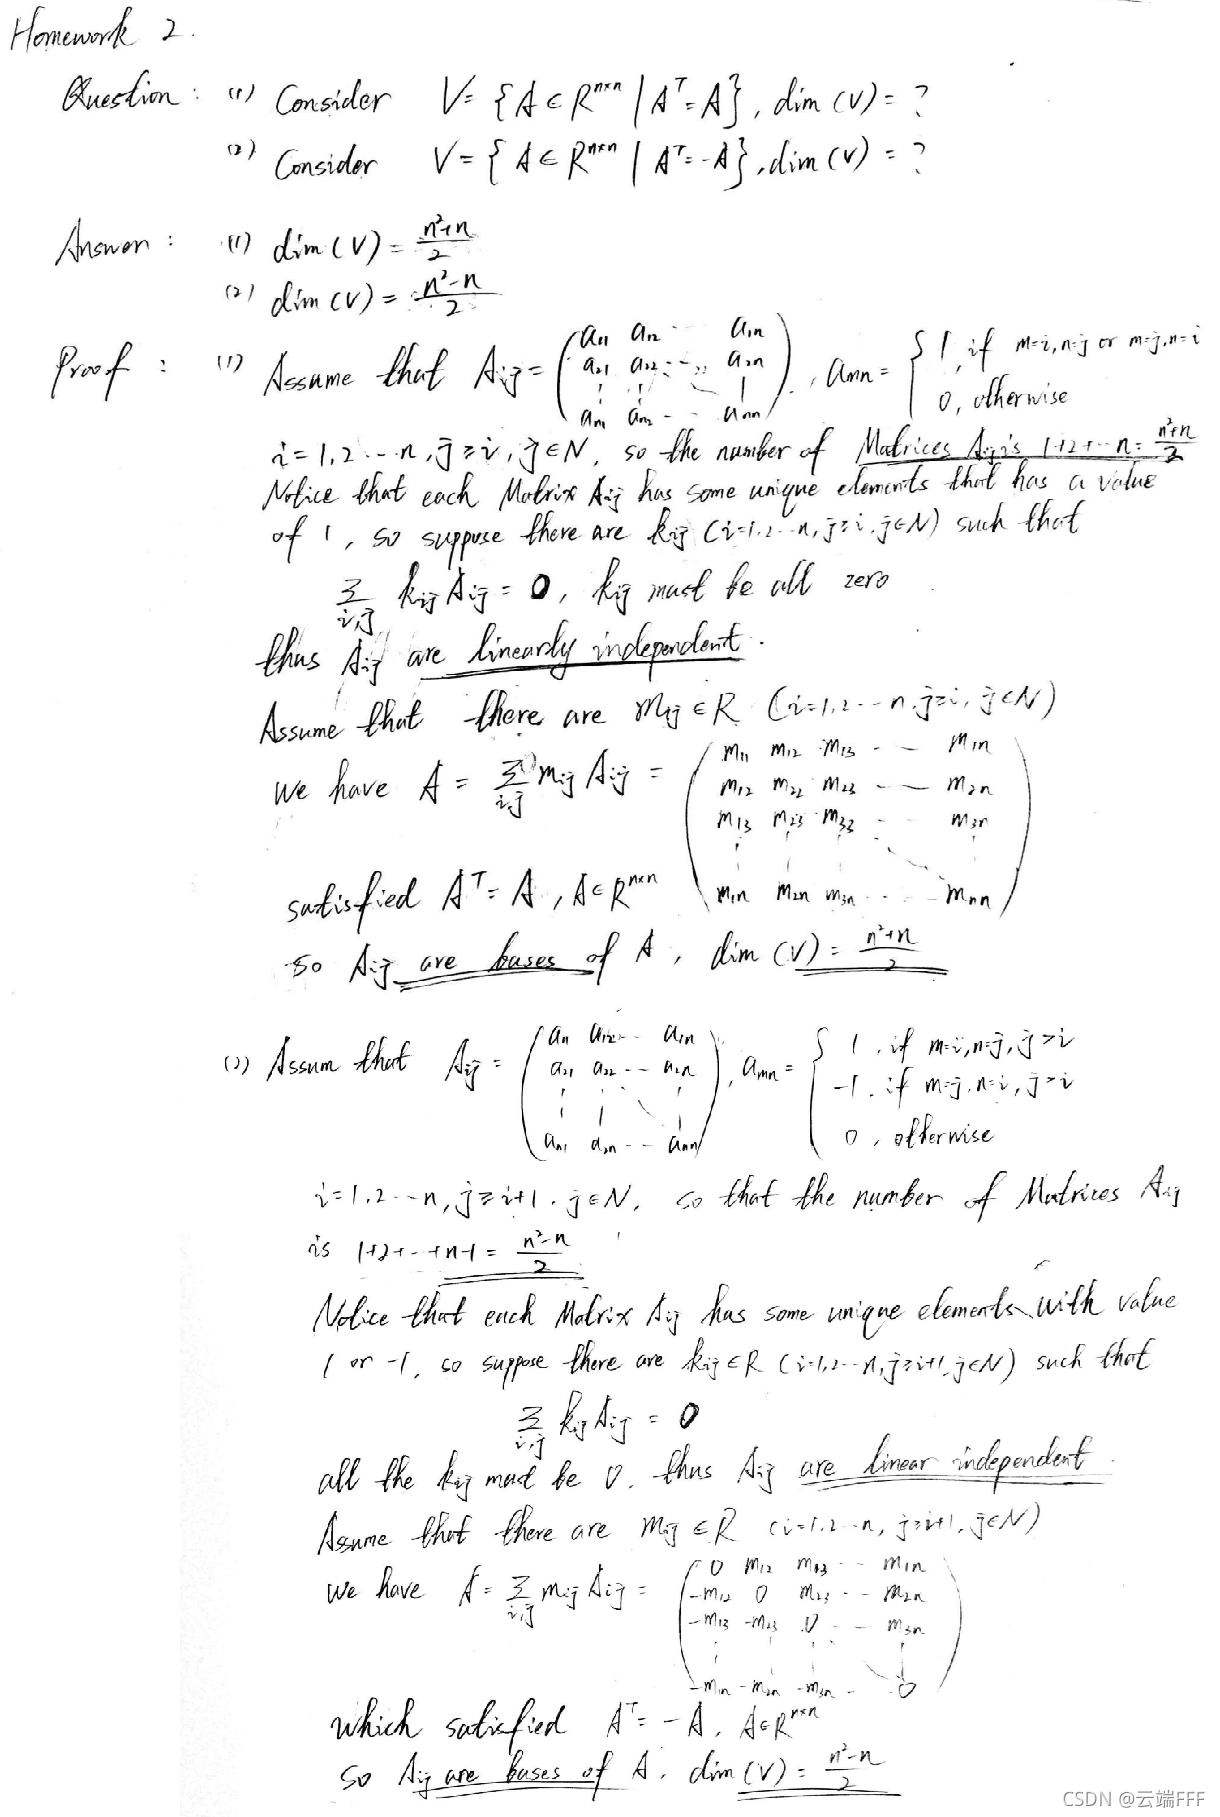 Homework 2.
Question: (1) Consider V = {A ∈ R^{n×n} | A^T = A}, dim(V) = ?
(2) Consider V = {A ∈ R^{n×n} | A^T = -A}, dim(V) = ?
Answer: (1) dim(V) = \frac{n^2+n}{2}
(2) dim(V) = \frac{n^2-n}{2}
Proof: (1) Assume that A_{ij} = \begin{pmatrix} a_{11} & a_{12} & \cdots & a_{1n} \\ a_{21} & a_{22} & \cdots & a_{2n} \\ \vdots & \vdots & \ddots & \vdots \\ a_{n1} & a_{n2} & \cdots & a_{nn} \end{pmatrix}, a_{mn} = \begin{cases} 1, if m=i, n=j or m=j, n=i \\ 0, otherwise \end{cases}
i=1,2...n, j≥i, j∈N, so the number of Matrices A_{ij} is 1+2+...n = \frac{n^2+n}{2}
Notice that each Matrix A_{ij} has some unique elements that has a value
of 1, so suppose there are k_{ij} (i=1,2...n, j≥i, j∈N) such that
\sum_{i,j} k_{ij} A_{ij} = 0, k_{ij} must be all zero
thus A_{ij} are linearly independent.
Assume that there are m_{ij} ∈ R (i=1,2...n, j≥i, j∈N)
we have A = \sum_{i,j} m_{ij} A_{ij} = \begin{pmatrix} m_{11} & m_{12} & m_{13} & \cdots & m_{1n} \\ m_{12} & m_{22} & m_{23} & \cdots & m_{2n} \\ m_{13} & m_{23} & m_{33} & \cdots & m_{3n} \\ \vdots & \vdots & \vdots & \ddots & \vdots \\ m_{1n} & m_{2n} & m_{3n} & \cdots & m_{nn} \end{pmatrix}
satisfied A^T = A, A ∈ R^{n×n}
so A_{ij} are bases of A, dim(V) = \frac{n^2+n}{2}
(2) Assum that A_{ij} = \begin{pmatrix} a_{11} & a_{12} & \cdots & a_{1n} \\ a_{21} & a_{22} & \cdots & a_{2n} \\ \vdots & \vdots & \ddots & \vdots \\ a_{n1} & a_{2n} & \cdots & a_{nn} \end{pmatrix}, a_{mn} = \begin{cases} 1, if m=i, n=j, j>i \\ -1, if m=j, n=i, j>i \\ 0, otherwise \end{cases}
i=1,2...n, j≥i+1, j∈N, so that the number of Matrices A_{ij}
is 1+2+...+n-1 = \frac{n^2-n}{2}
Notice that each Matrix A_{ij} has some unique elements with value
1 or -1, so suppose there are k_{ij}∈R (i=1,2...n, j≥i+1, j∈N) such that
\sum_{i,j} k_{ij} A_{ij} = 0
all the k_{ij} must be 0, thus A_{ij} are linear independent.
Assume that there are m_{ij} ∈ R (i=1,2...n, j≥i+1, j∈N)
we have A = \sum_{i,j} m_{ij} A_{ij} = \begin{pmatrix} 0 & m_{12} & m_{13} & \cdots & m_{1n} \\ -m_{12} & 0 & m_{23} & \cdots & m_{2n} \\ -m_{13} & -m_{23} & 0 & \cdots & m_{3n} \\ \vdots & \vdots & \vdots & \ddots & \vdots \\ -m_{1n} & -m_{2n} & -m_{3n} & \cdots & 0 \end{pmatrix}
which satisfied A^T = -A, A∈R^{n×n}
so A_{ij} are bases of A, dim(V) = \frac{n^2-n}{2}
CSDN @云端FFF